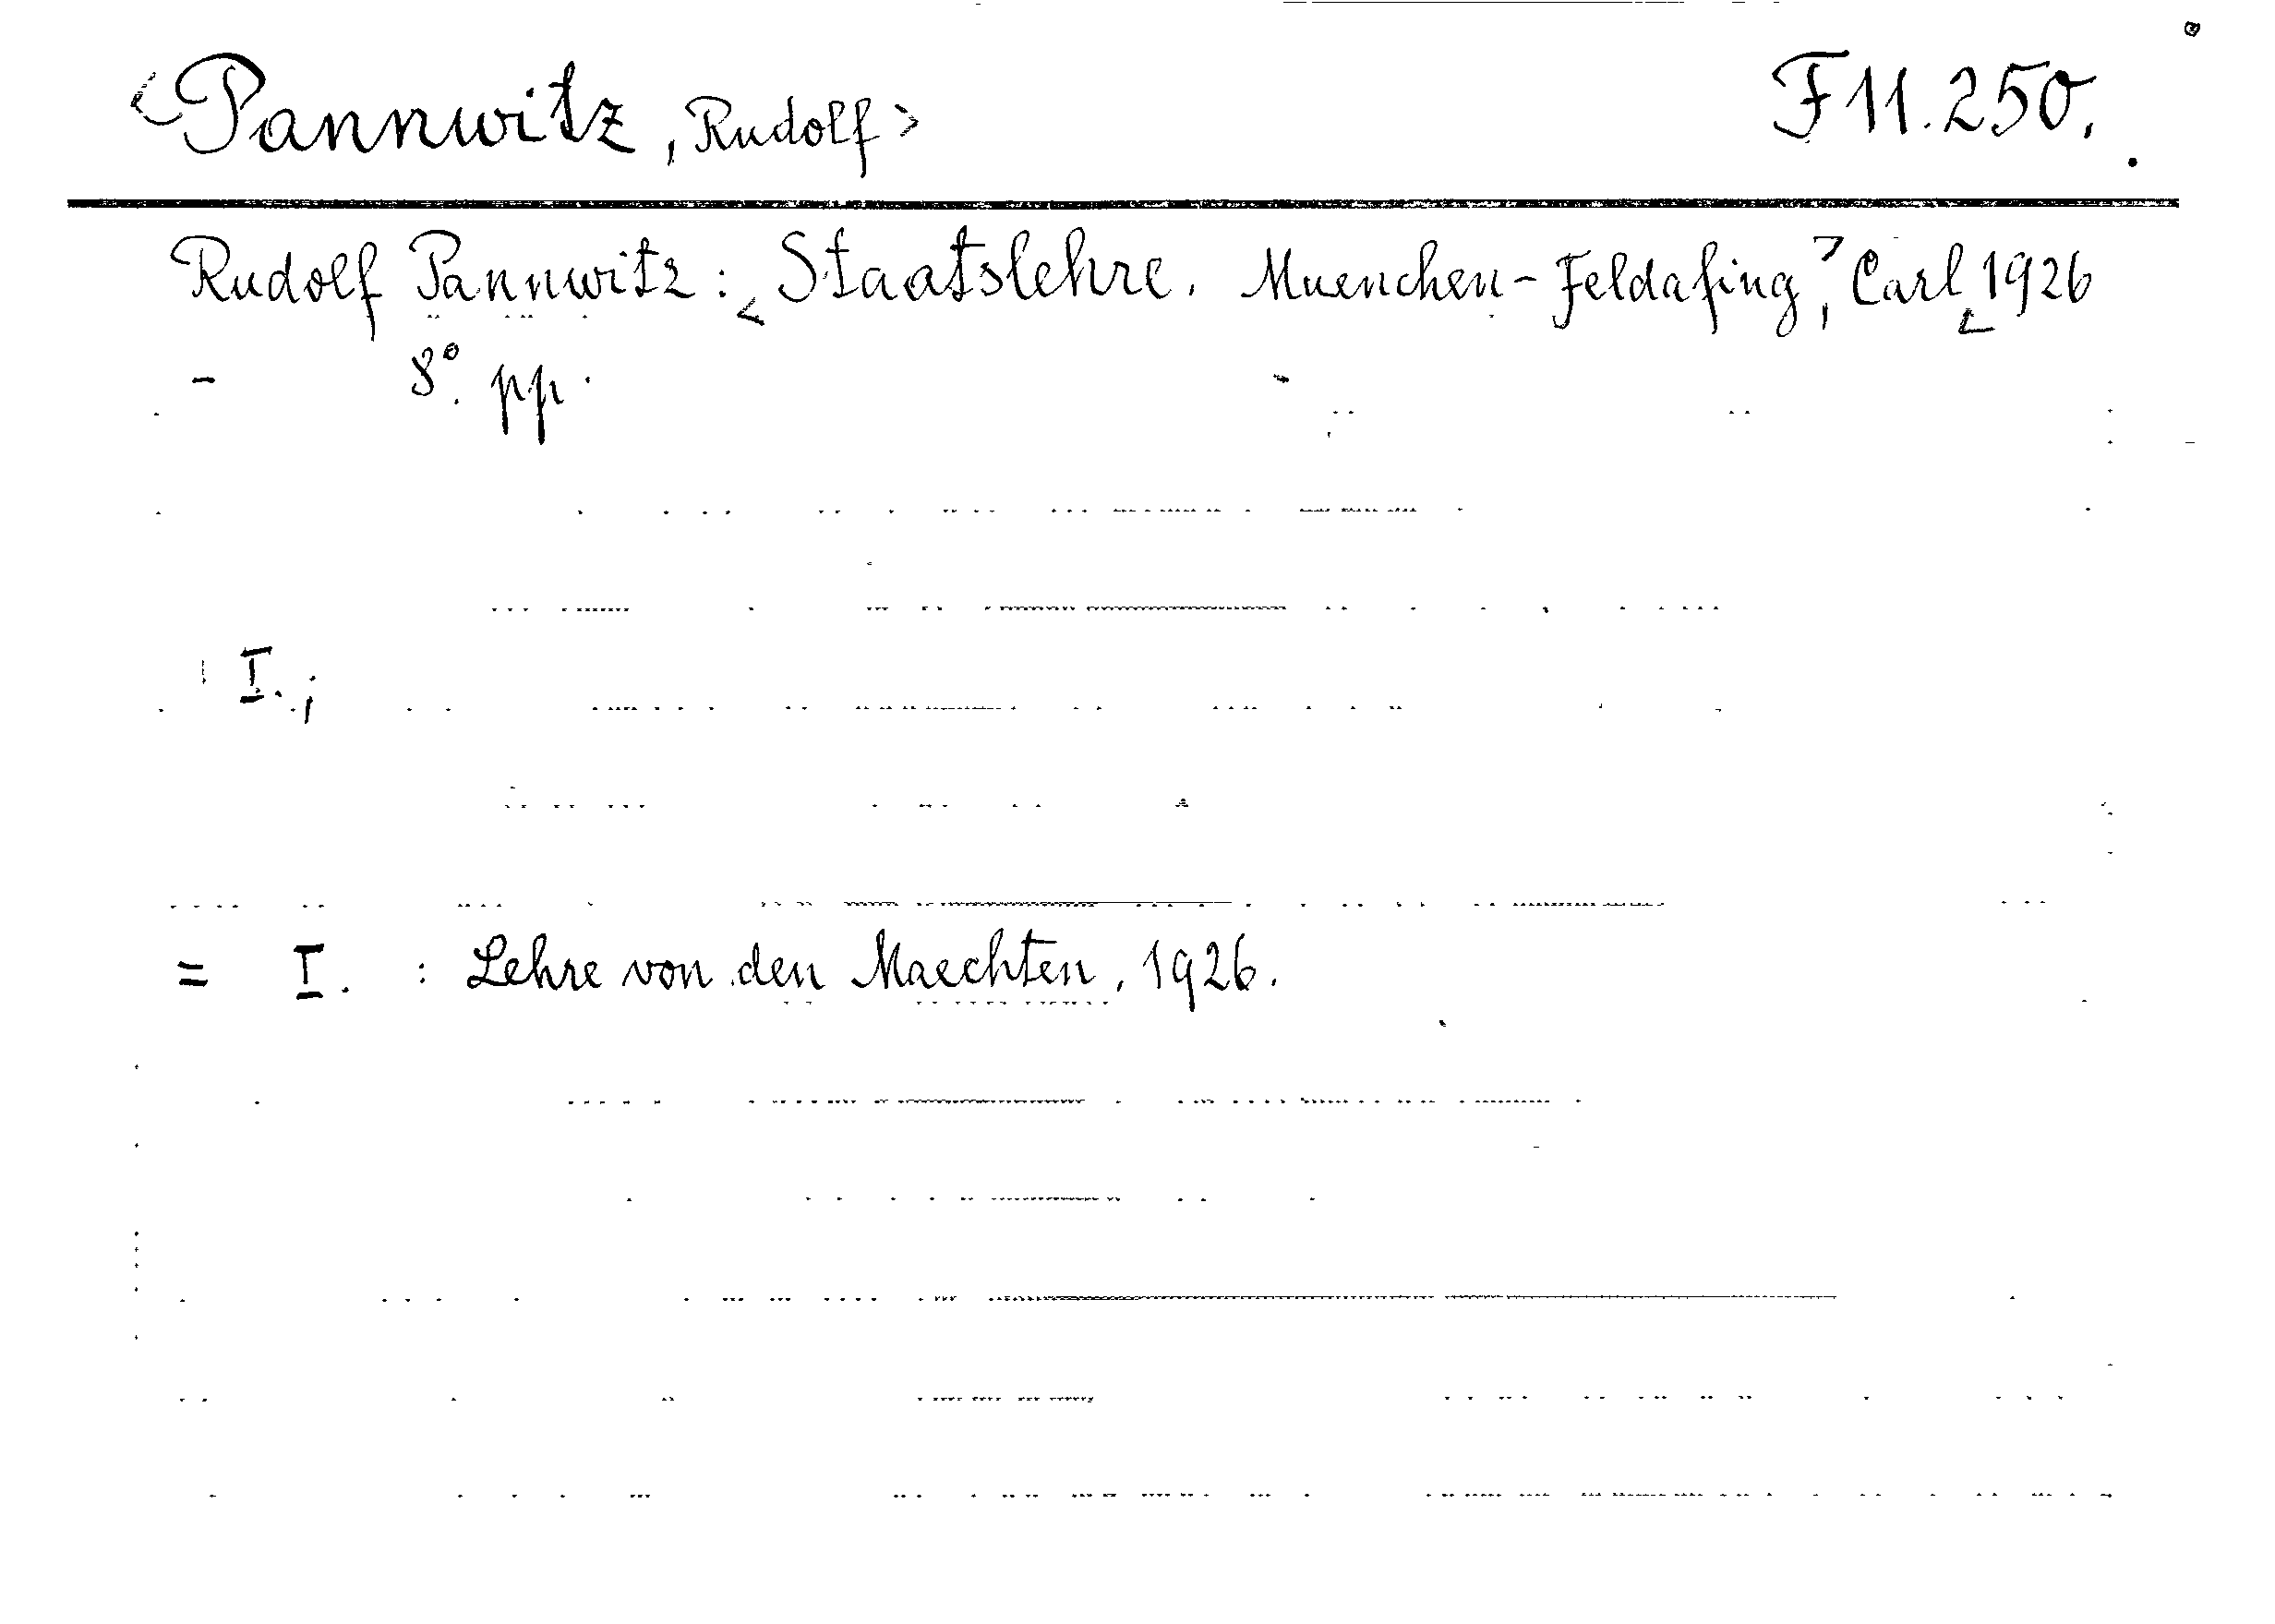 <Pannwitz, Rudolf> F 11.250.
Rudolf Pannwitz: < Staatslehre. Muenchen-Feldafing>, Carl < 1926
- 8°. pp.
I.;
= I. : Lehre von den Maechten, 1926.